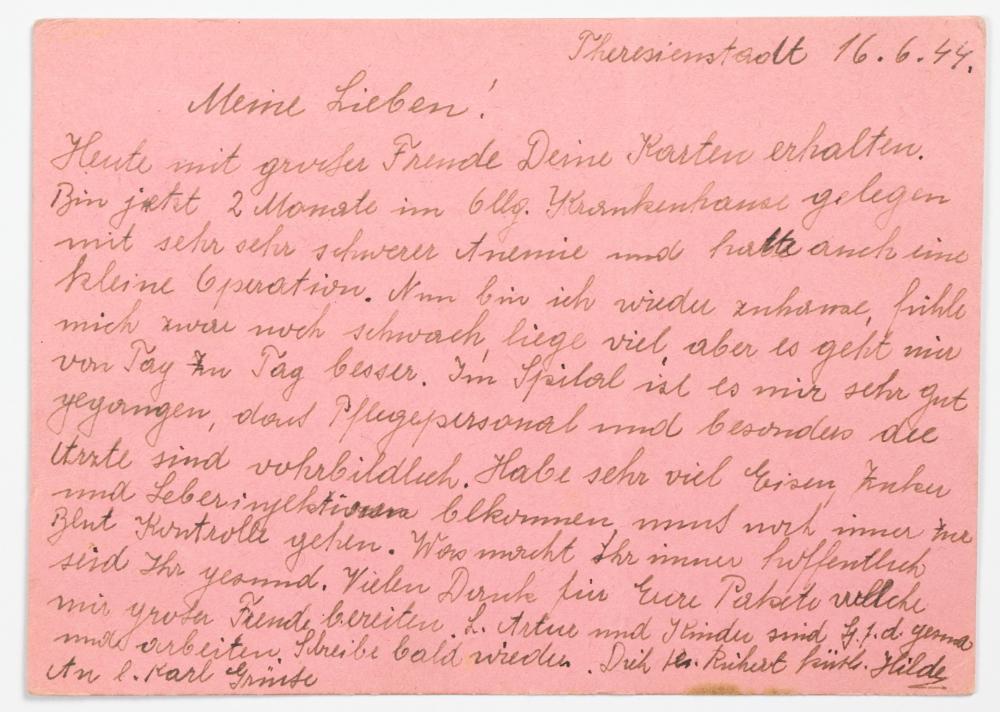 Theresienstadt 16.6.44.
Meine Lieben!
Heute mit großer Freude Deine Karten erhalten.
Bin jetzt 2 Monate im Allg. Krankenhause gelegen
mit sehr sehr schwerer Anemie und hatte auch eine
kleine Operation. Nun bin ich wieder zuhause, fühle
mich zwar noch schwach, liege viel, aber es geht mir
von Tag zu Tag besser. Im Spital ist es mir sehr gut
gegangen, das Pflegepersonal und besonders die
Ärzte sind vohrbildlich. Habe sehr viel Eisen, Zuker
und Leberinjektionen bekommen, muss noch immer zur
Blut Kontrolle gehen. Was macht Ihr immer hoffentlich
seid Ihr gesund. Vielen Dank für Eure Pakete wellche
mir große Freude bereiten. L. Artur und Kinder sind G.s.d. gesund
und arbeiten. Schreibe bald wieder. Dich Hilde
An l. Karl Grüsse